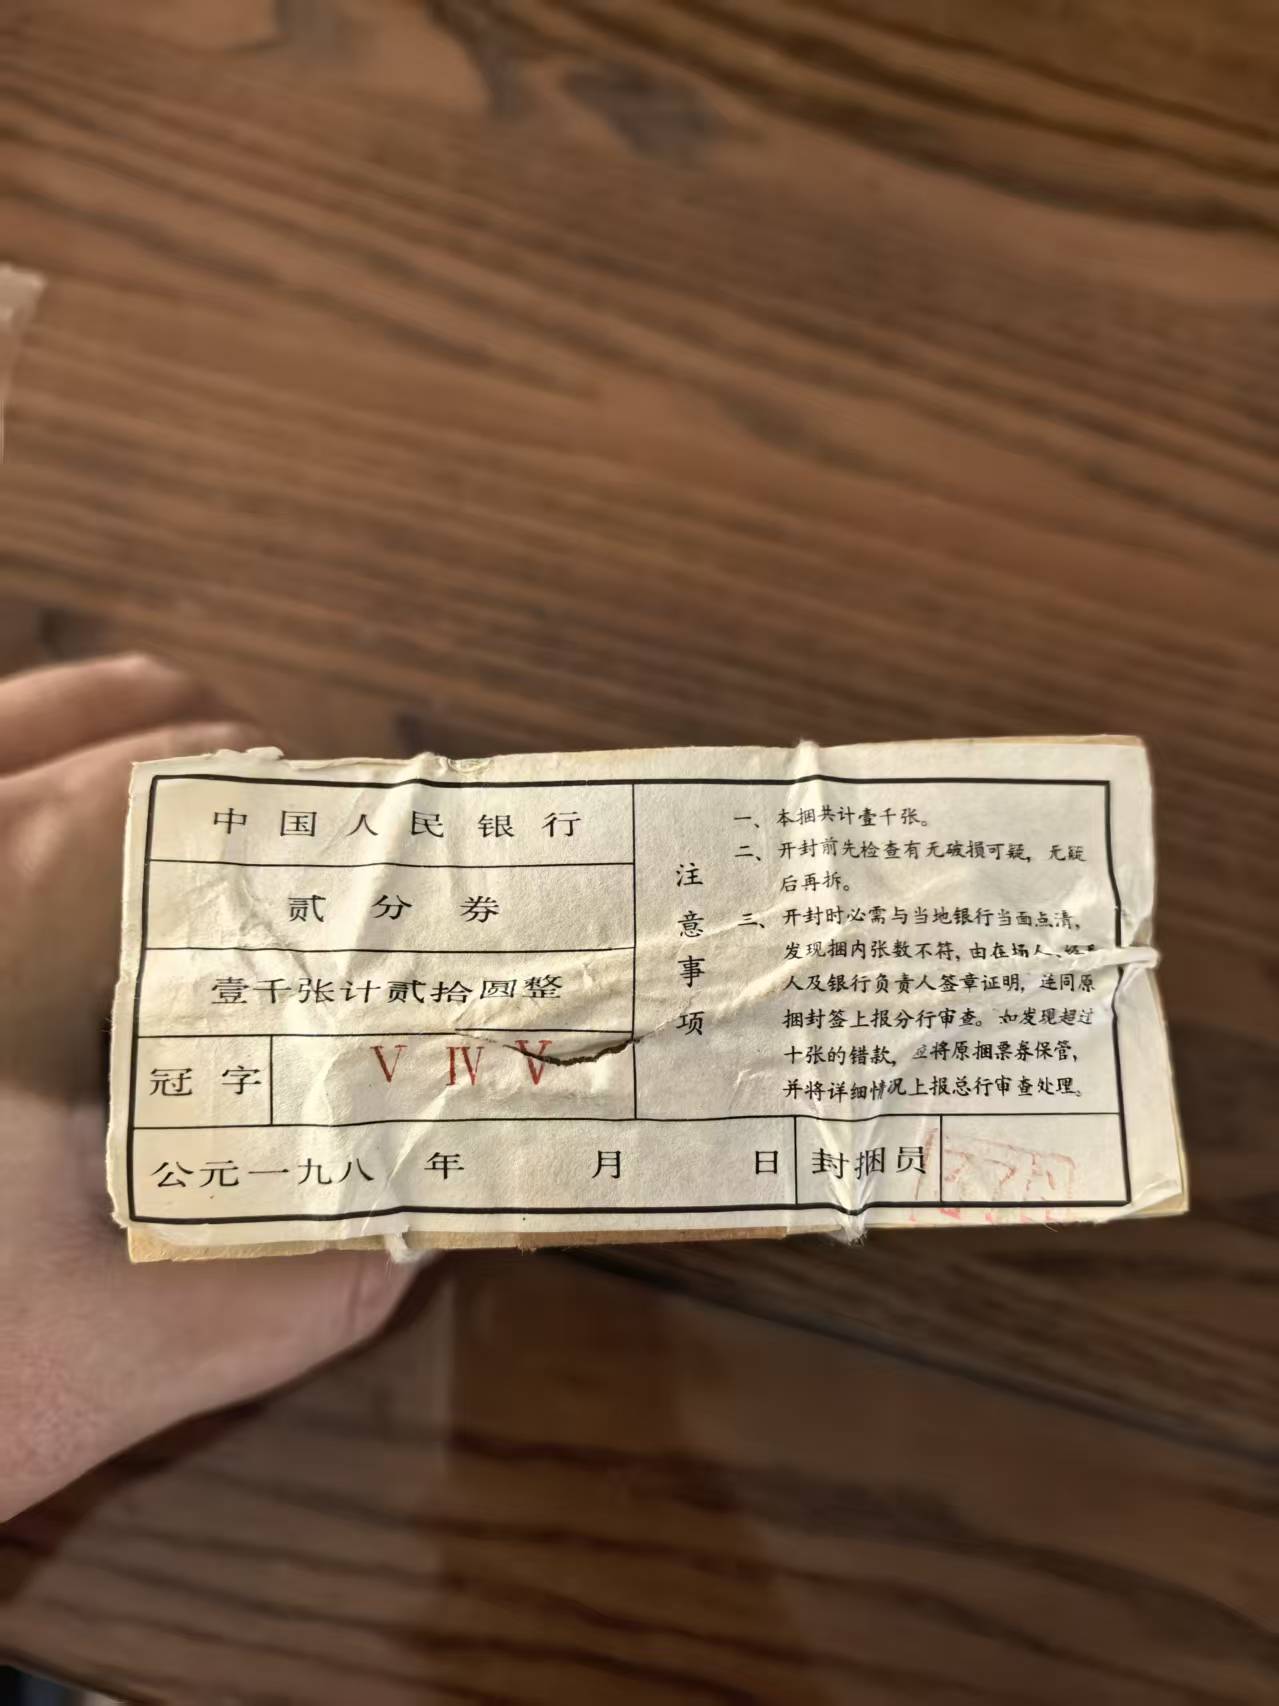 中国人民银行
贰分券
壹千张计贰拾圆整
冠字 V IV V
公元一九八 年 月 日
封捆员
注意事项
一、本捆共计壹千张。
二、开封前先检查有无破损可疑，无疑
后再拆。
三、开封时必需与当地银行当面点清，
发现捆内张数不符，由在场人、
人及银行负责人签章证明，连同原
捆封签上报分行审查。如发现超过
十张的错款，应将原捆票券保管，
并将详细情况上报总行审查处理。